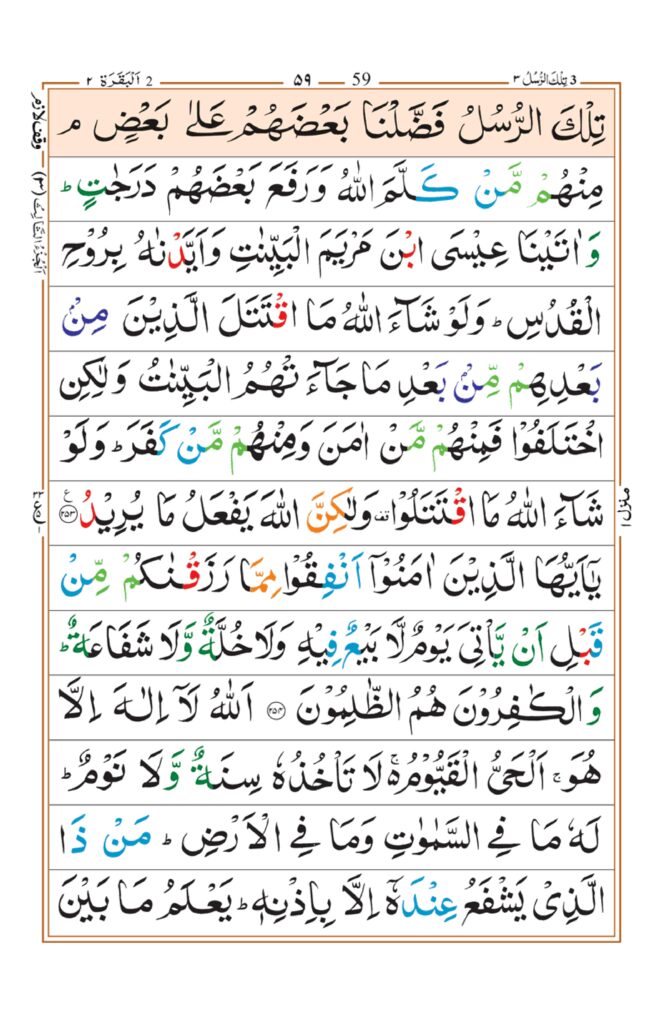 3 تِلْكَ الرُّسُلُ ٣
59 ٥٩
2 اَلْبَقَرَة ٢
وقف لازم
اَلْجُزْءُ الثَّالِثُ (٣)
تِلْكَ الرُّسُلُ فَضَّلْنَا بَعْضَهُمْ عَلٰى بَعْضٍ ۘ
مِنْهُمْ مَّنْ كَلَّمَ اللّٰهُ وَرَفَعَ بَعْضَهُمْ دَرَجٰتٍ ؕ
وَاٰتَيْنَا عِيْسَى ابْنَ مَرْيَمَ الْبَيِّنٰتِ وَاَيَّدْنٰهُ بِرُوْحِ
الْقُدُسِ ؕ وَلَوْ شَآءَ اللّٰهُ مَا اقْتَتَلَ الَّذِيْنَ مِنْۢ
بَعْدِهِمْ مِّنْۢ بَعْدِ مَا جَآءَتْهُمُ الْبَيِّنٰتُ وَلٰكِنِ
اخْتَلَفُوْا فَمِنْهُمْ مَّنْ اٰمَنَ وَمِنْهُمْ مَّنْ كَفَرَ ؕ وَلَوْ
شَآءَ اللّٰهُ مَا اقْتَتَلُوْا ۫ وَلٰكِنَّ اللّٰهَ يَفْعَلُ مَا يُرِيْدُ ﴿۲۵۳﴾ ع
يٰۤاَيُّهَا الَّذِيْنَ اٰمَنُوْۤا اَنْفِقُوْا مِمَّا رَزَقْنٰكُمْ مِّنْ
قَبْلِ اَنْ يَّاْتِىَ يَوْمٌ لَّا بَيْعٌ فِيْهِ وَلَا خُلَّةٌ وَّلَا شَفَاعَةٌ ؕ
وَالْكٰفِرُوْنَ هُمُ الظّٰلِمُوْنَ ﴿۲۵۴﴾ اَللّٰهُ لَاۤ اِلٰهَ اِلَّا
هُوَ ۚ اَلْحَىُّ الْقَيُّوْمُ ۚ۬ لَا تَاْخُذُهٗ سِنَةٌ وَّلَا نَوْمٌ ؕ
لَهٗ مَا فِى السَّمٰوٰتِ وَمَا فِى الْاَرْضِ ؕ مَنْ ذَا
الَّذِىْ يَشْفَعُ عِنْدَهٗۤ اِلَّا بِاِذْنِهٖ ؕ يَعْلَمُ مَا بَيْنَ
منزل ١